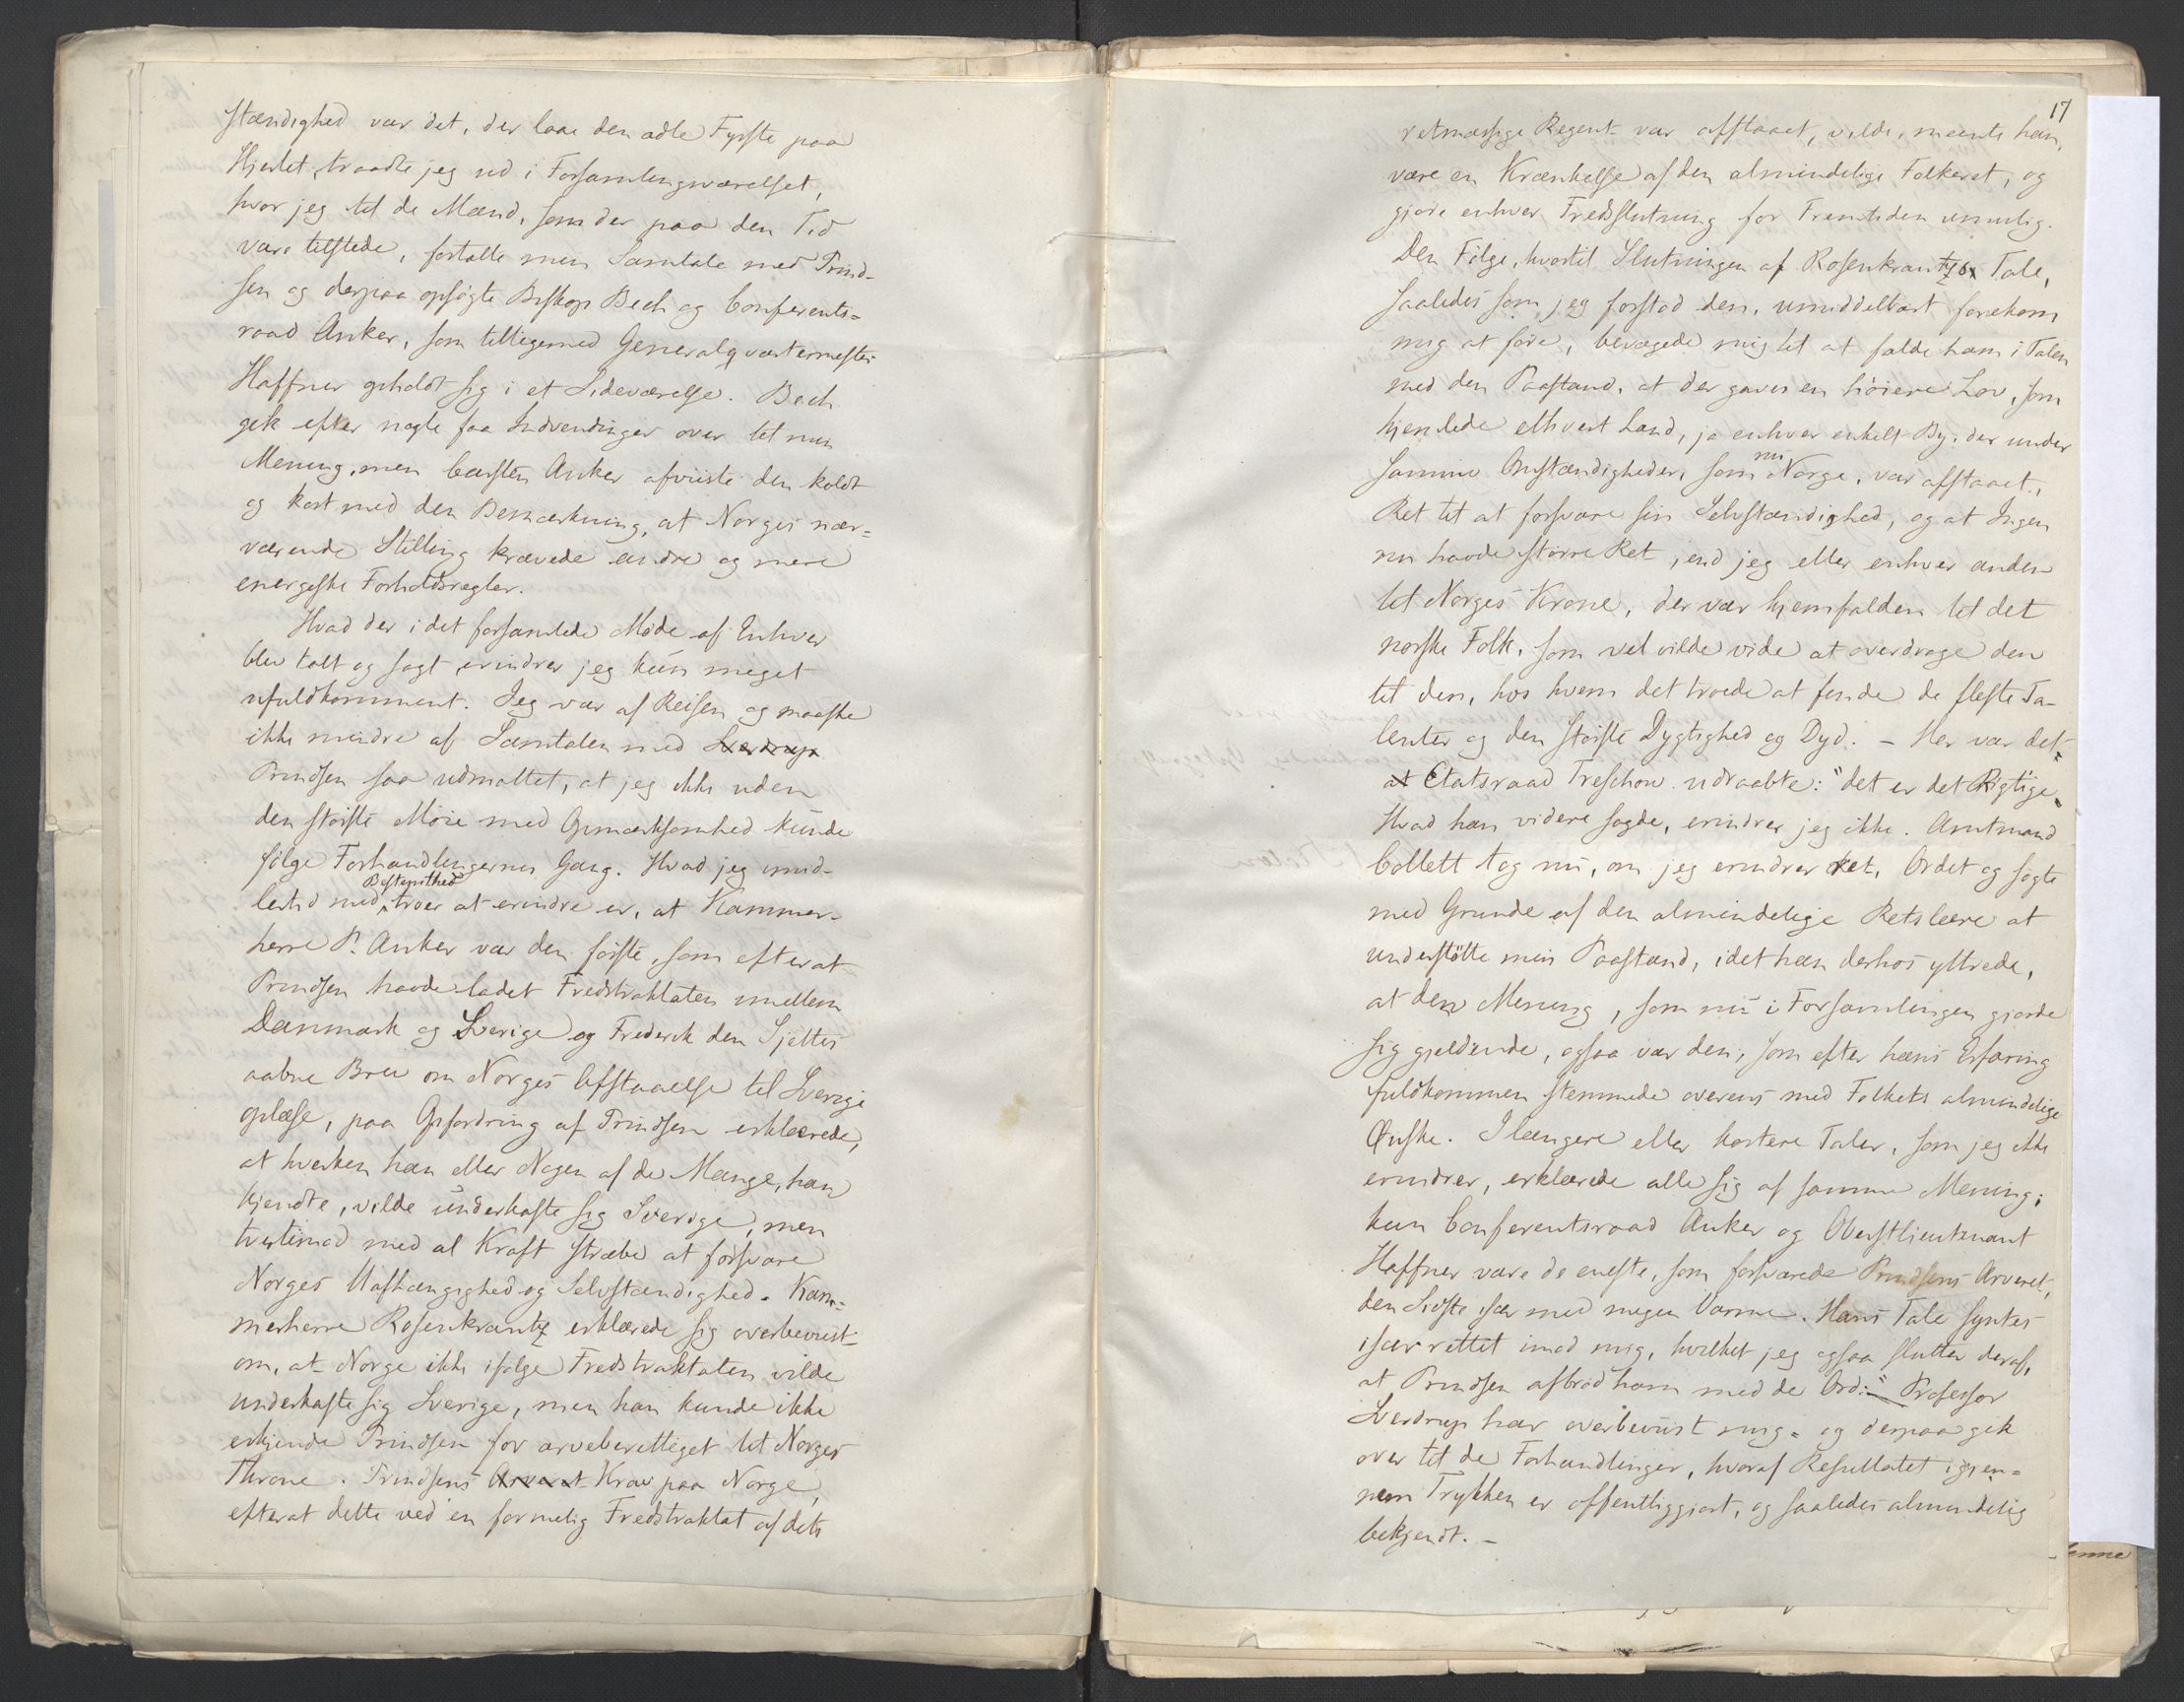 stændighed var det, der laae den ædle Fyrste paa
Hjertet, traadte jeg ud i Forsamlingsværelset,
hvor jeg til de Mænd, som der paa den Tid
vare tilstede, fortalte min Samtale med Prind-
sen og derpaa opsøgte Biskop Bech og Conferents-
raad Anker, som tilligemed Generalqvarteermester
Haffner opholdt sig i et Sideværelse. Bech
gik efter nogle faa Indvendinger over til min
Mening, men Carsten Anker afviiste den koldt
og kort med den Bemærkning, at Norges nær-
værende Stilling krævede andre og mere
energiske Forholdsregler.
Hvad der i det forsamlede Møde af Enhver
blev talt og sagt erindrer jeg kun meget
ufuldkomment. Jeg var af Reisen og maaske
ikke mindre af Samtalen med Sverdrup
Prindsen saa udmattet, at jeg ikke uden
den største Møie med Opmærksomhed kunde
følge Forhandlingernes Gang. Hvad jeg imid-
Bestemthed
lertid med troer at erindre er, at Kammer-
herre P. Anker var den første, som efterat
Prindsen havde ladet Fredstraktaten imellem
Danmark og Sverige og Frederik den Sjettes
aabne Brev om Norges Afstaaelse til Sverige
oplæse, paa Opfordring af Prindsen erklærede,
at hverken han eller Nogen af de Mange, han
kjendte, vilde underkaste sig Sverige, men
tvertimod med al Kraft stræbe at forsvare
Norges Uafhængighed og Selvstændighed. Kam-
merherre Rosenkrantz erklærede sig overbeviist
om, at Norge ikke ifølge Fredstraktaten vilde
underkaste sig Sverige, men han kunde ikke
erkjende Prindsen for arveberettiget til Norges
Throne. Prindsens Arveret Krav paa Norge,
efterat dette ved en formelig Fredstraktat af dets
17
retmæssige Regent var afstaaet, vilde, meente han,
være en Krænkelse af den almindelige Folkeret, og
gjøre enhver Fredslutning for Fremtiden umulig.
Den Følge, hvortil Slutningen af Rosenkrantzes Tale,
saaledes som jeg forstod den, umiddelbart forekom
mig at føre, bevægede mig til at falde ham i Talen
med den Paastand, at der gaves en høiere Lov, som
hjemlede ethvert Land, ja enhver enkelt By, der under
nu
samme Omstændigheder, som Norge, var afstaaet,
Ret til at forsvare sin Selvstændighed, og at Ingen
nu havde større Ret, end jeg eller enhver anden
til Norges Krone, der var hjemfalden til det
norske Folk, som vel vilde vide at overdrage den
til den, hos hvem det troede at finde de fleste Ta-
lenter og den største Dygtighed og Dyd. – Her var det
at Etatsraad Treschow udraabte: "det er det Rigtige"
Hvad han videre sagde, erindrer jeg ikke. Amtmand
Collett tog nu, om jeg erindrer ret, Ordet og søgte
med Grunde af den almindelige Retslære at
understøtte min Paastand, idet han derhos yttrede,
at den Mening, som nu i Forsamlingen gjorde
sig gjeldende, ogsaa var den, som efter hans Erfaring
fuldkommen stemmede overens med Folkets almindelige
Ønske. I længere eller kortere Taler, som jeg ikke
erindrer, erklærede alle sig af samme Mening;
kun Conferentsraad Anker og Oberstlieutenant
Haffner vare de eneste, som forsvarede Prindsens Arveret,
den Sidste især med megen Varme. Hans Tale syntes
især rettet imod mig, hvilket jeg ogsaa slutter deraf,
at Prindsen afbrød ham med de Ord: "Professor
Sverdrup har overbeviist mig" og derpaa gik
over til de Forhandlinger, hvoraf Resultatet igjen-
nem Trykken er offentliggjort, og saaledes almindelig
bekjendt. –